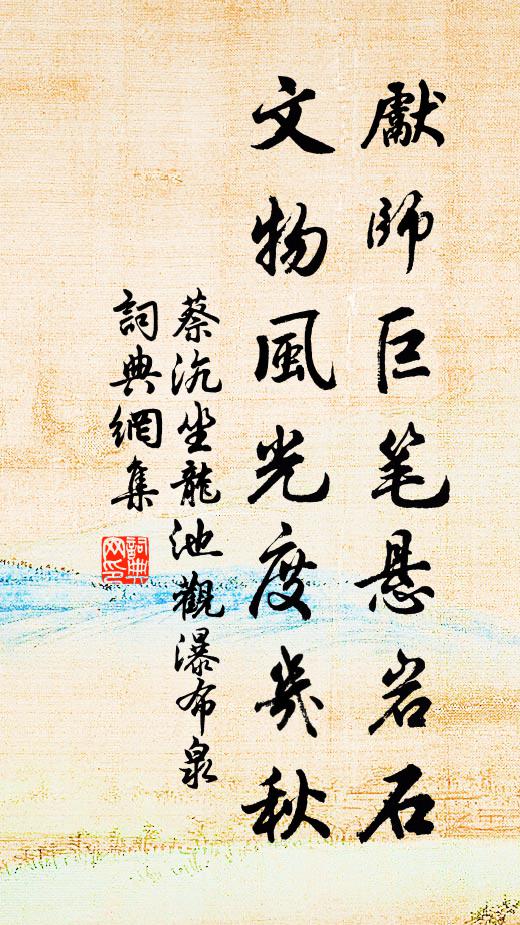 獻師巨笔悬岩石
文物風光度幾秋
蔡沉坐龍池觀瀑布泉
詞典網集
詞典
网印